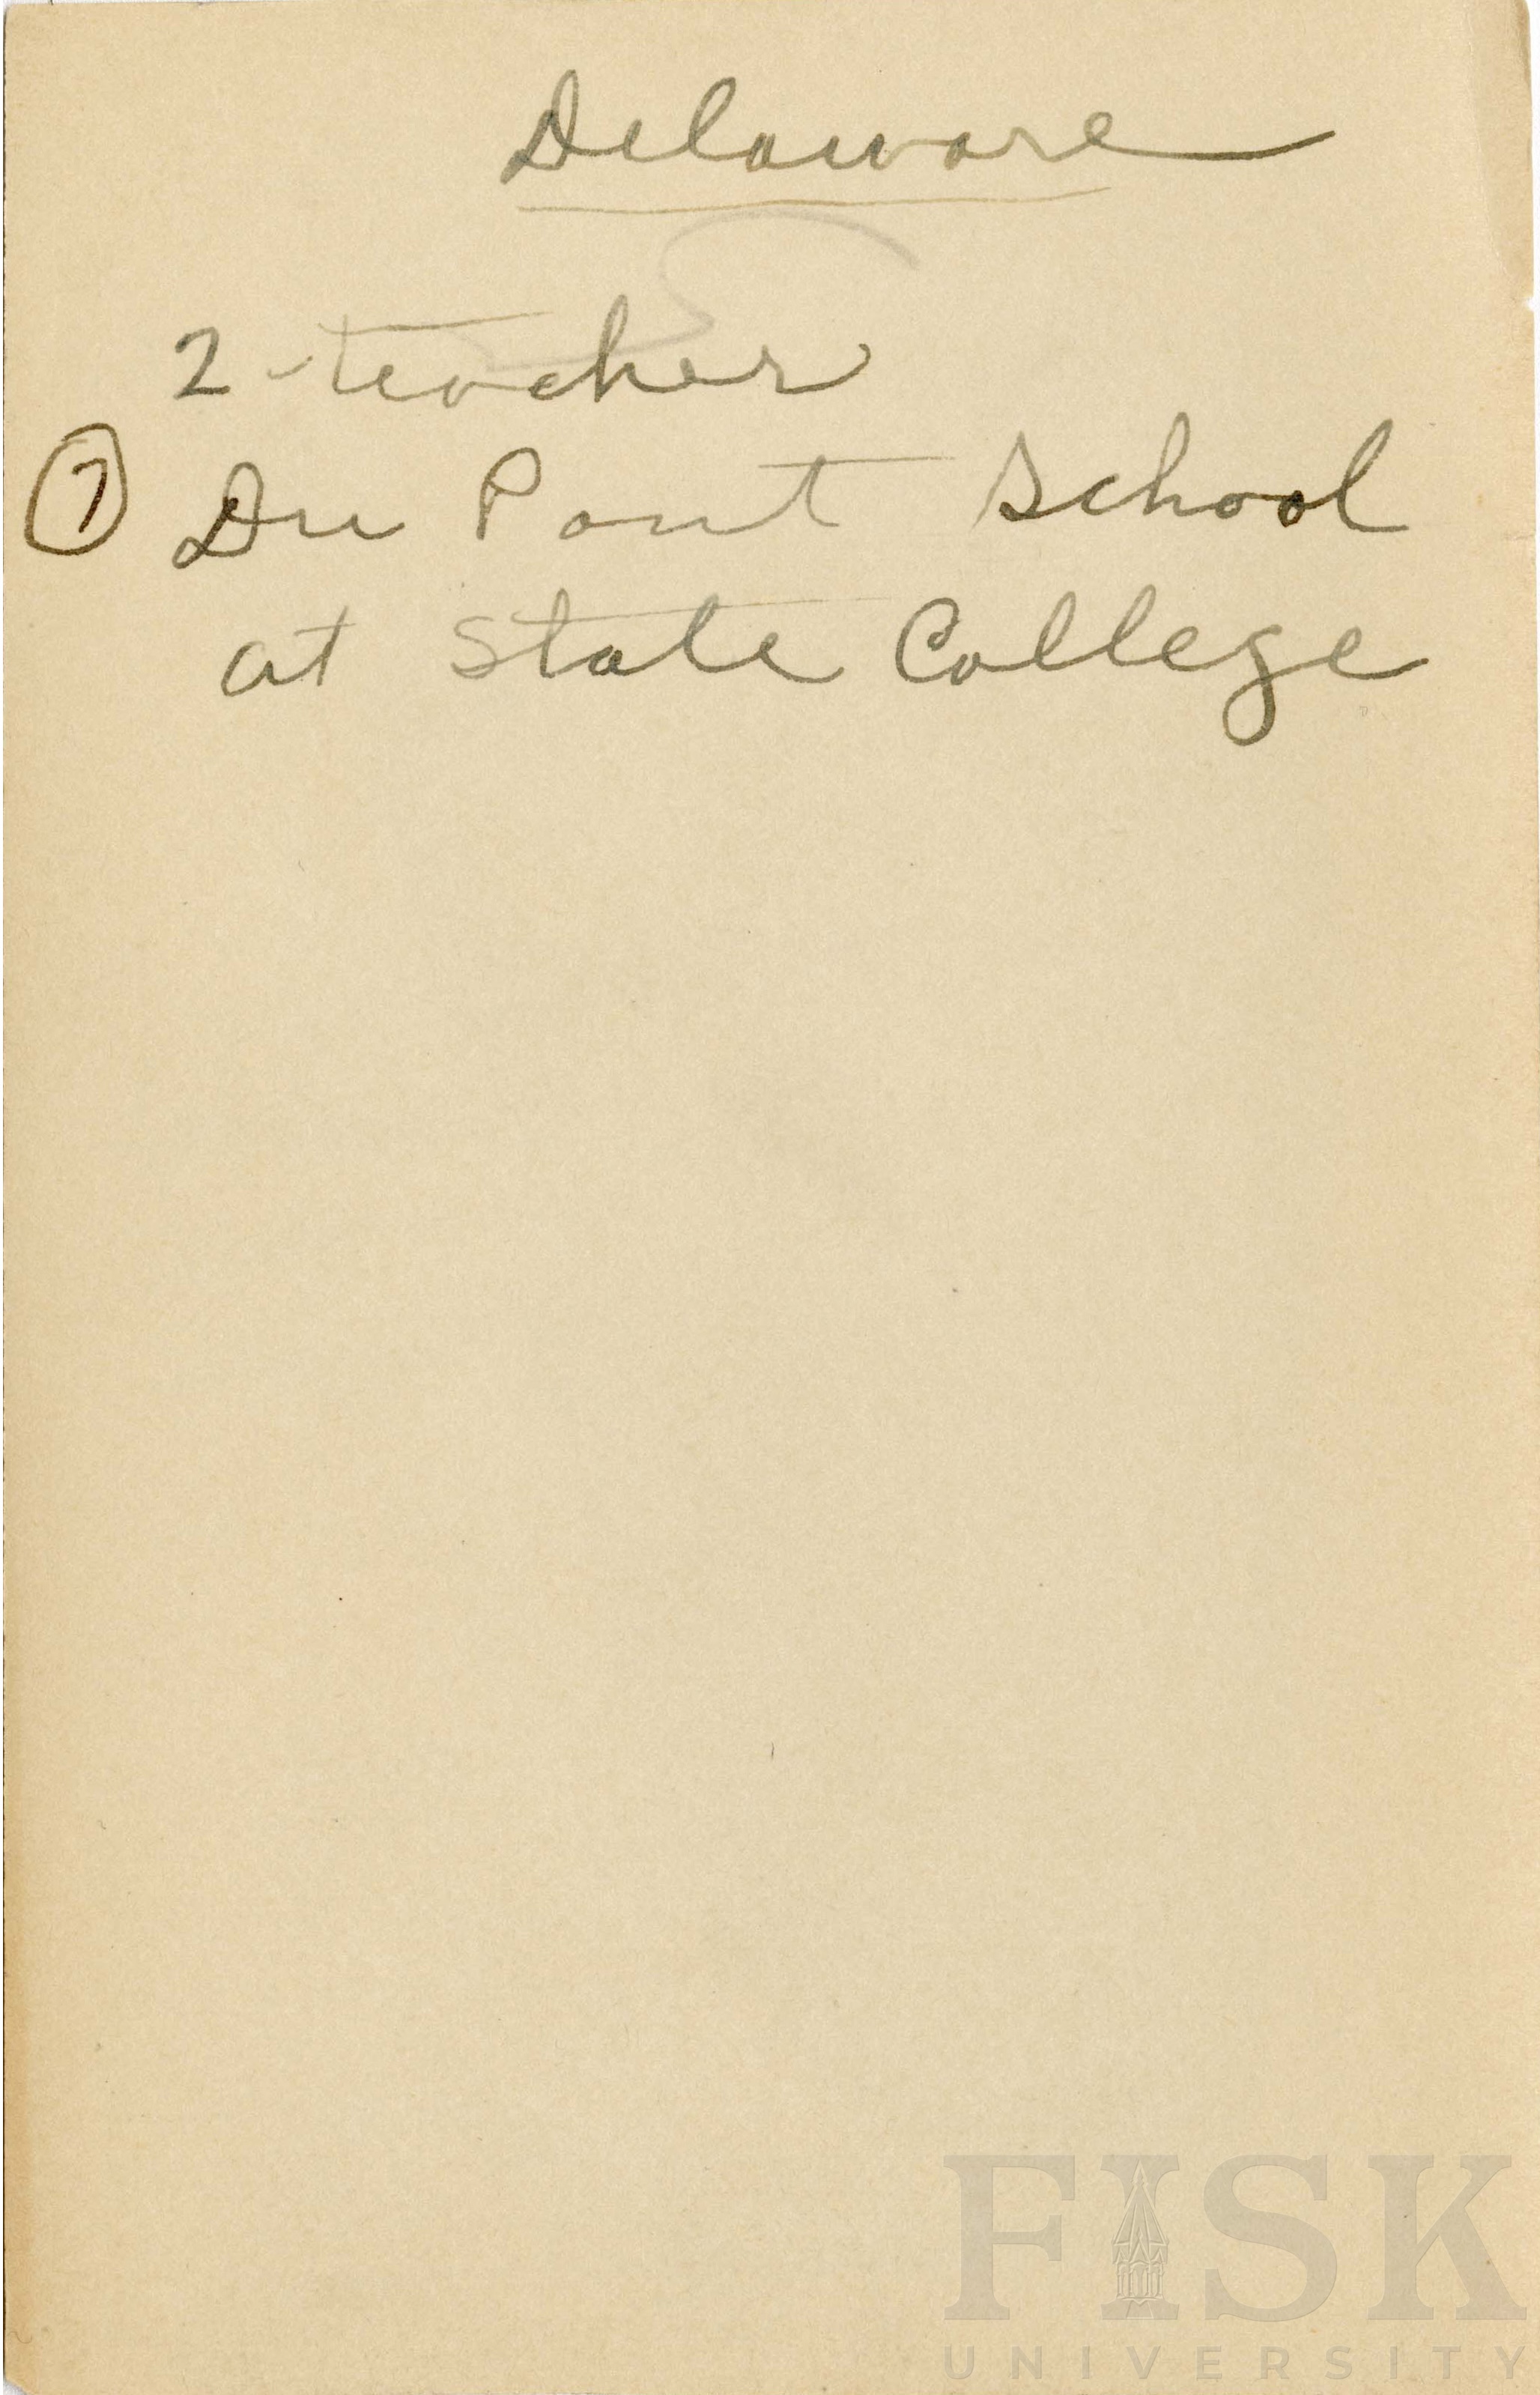 Delaware
2-teacher
⑦ Du Pont School
at State College
FISK
UNIVERSITY